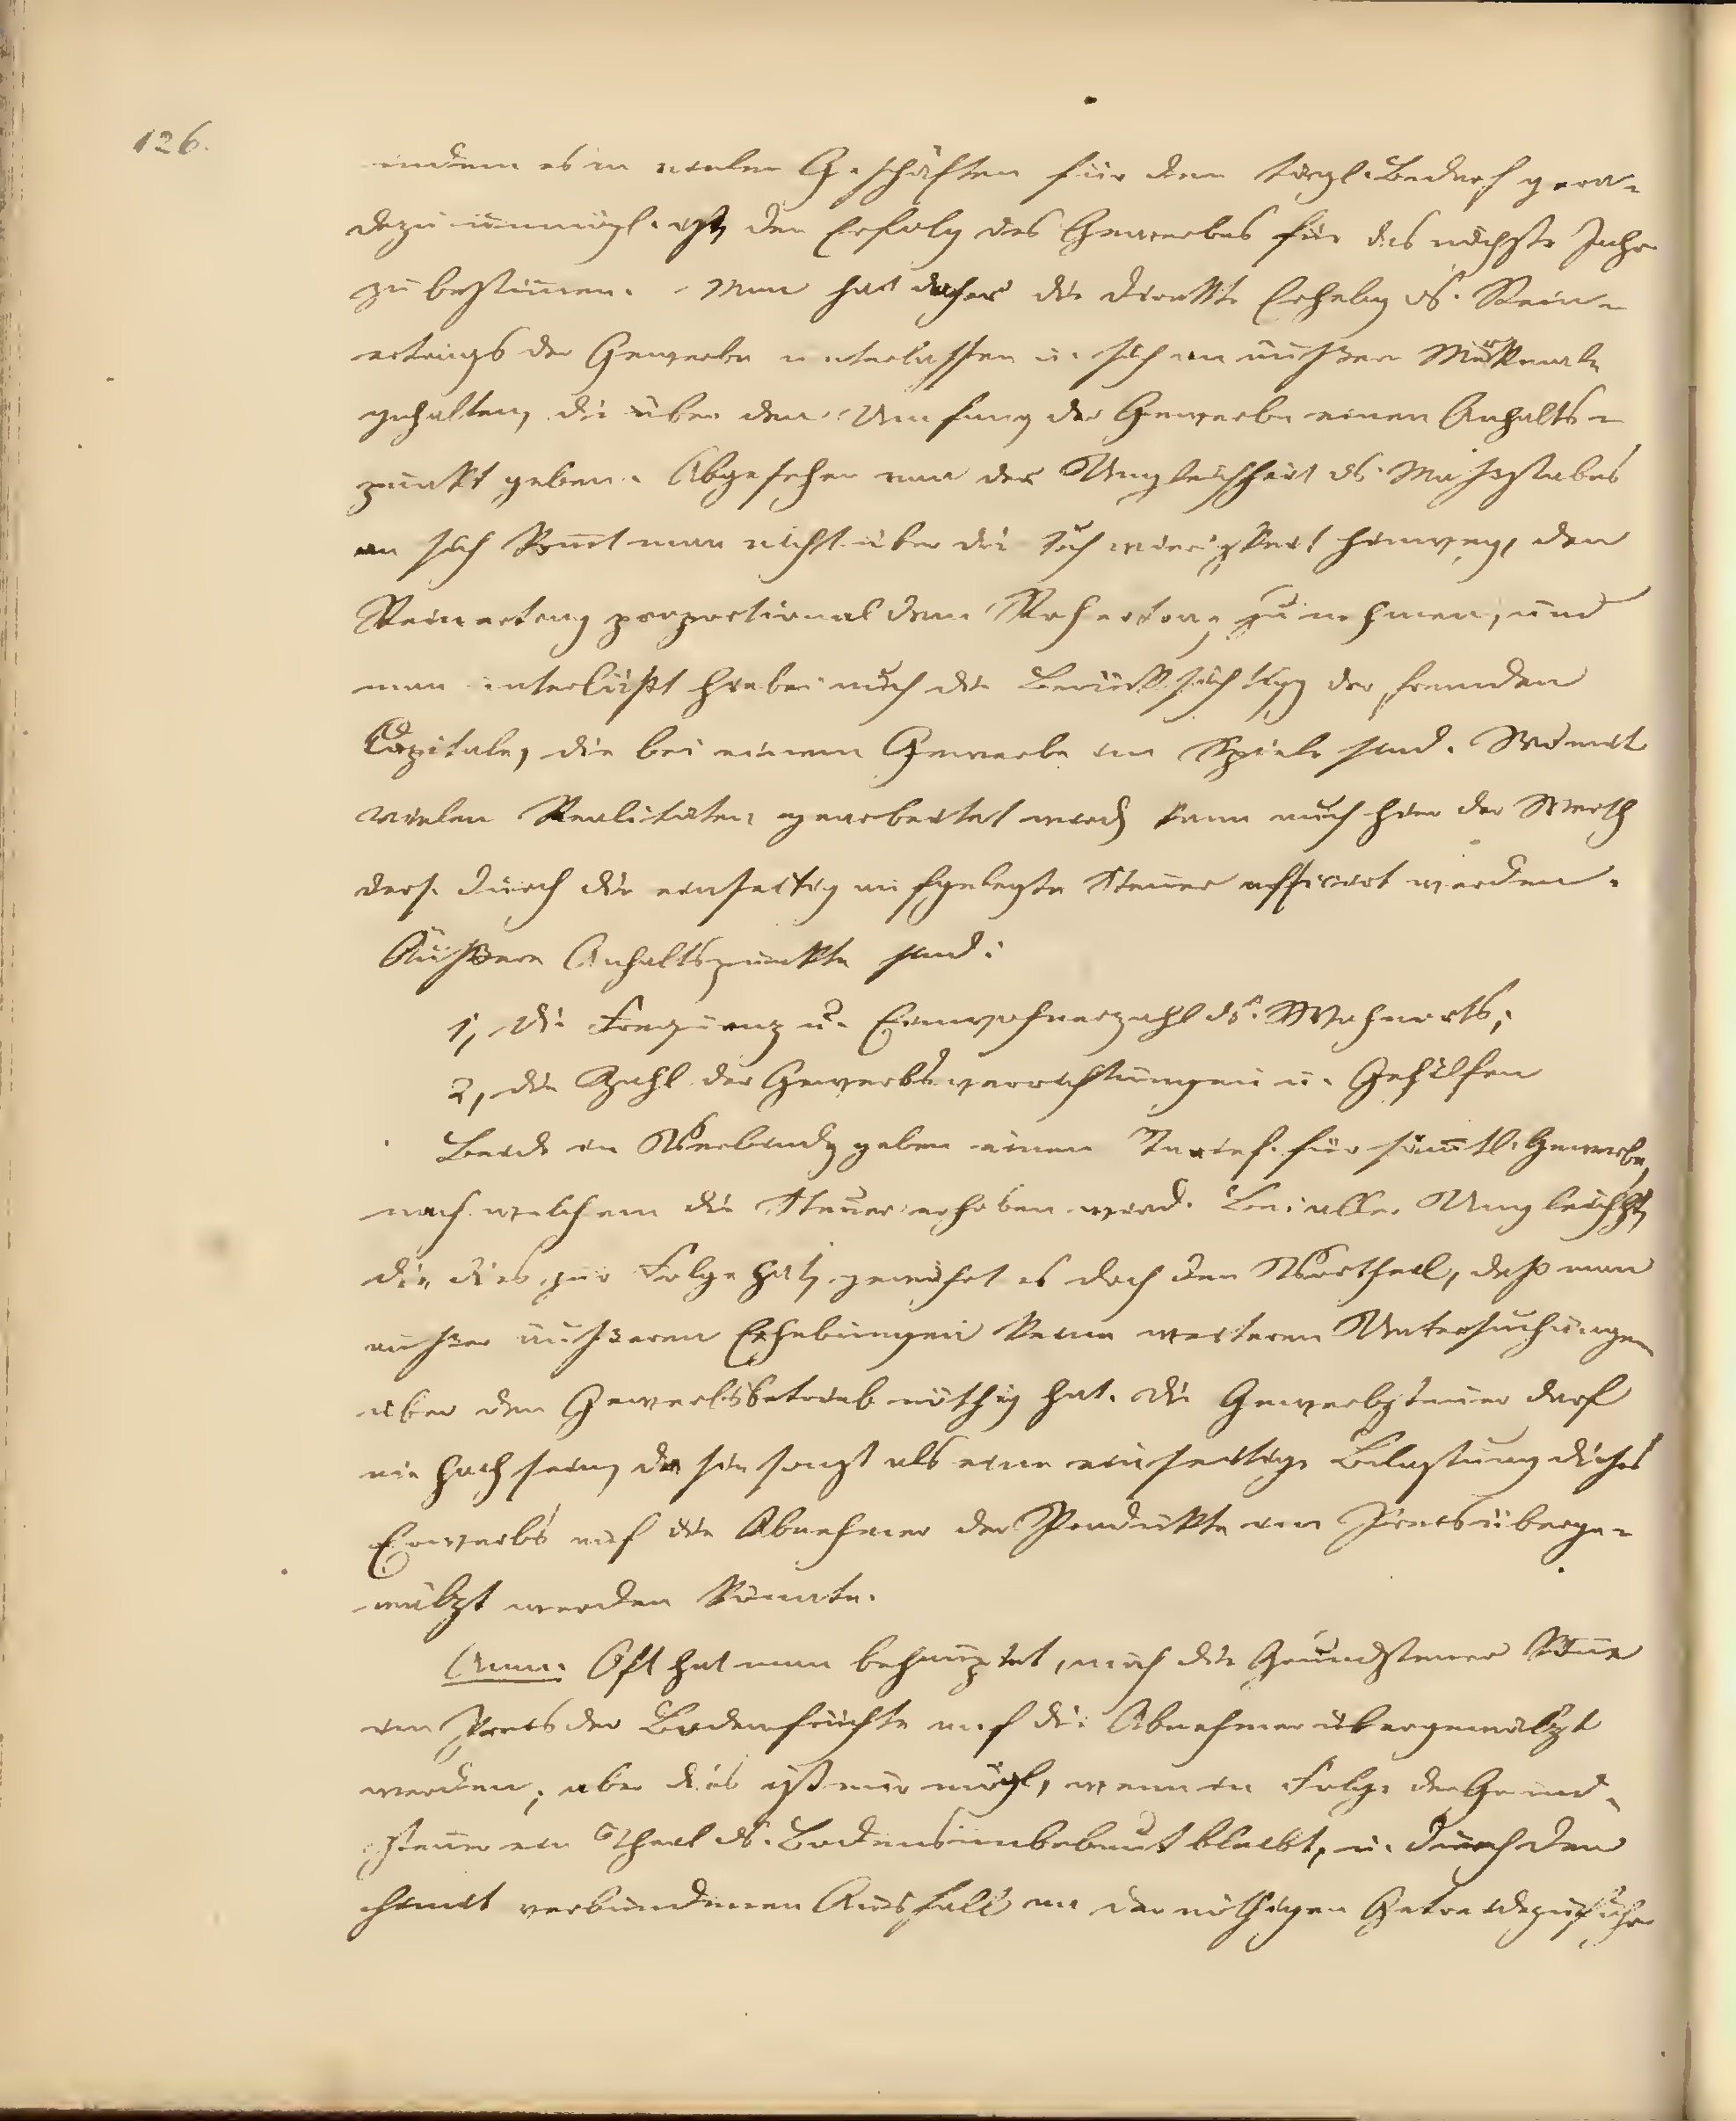 126.
indem es in vielen Geschäften für den tägl. Bedarf gera-
dezu unmögl. ist, den Erfolg des Gewerbes für das nächste Jahr
zu bestimmen. Man hat daher die direkte Erhebg ds. Rein-
ertrags der Gewerbe unterlassen u. sich an äußere Merkmale
gehalten, die über den Umfang der Gewerbe einen Anhalts-
punkt geben. Abgesehen von der Ungleichheit ds. Maßstabes
an sich komt man nicht über die Schwierigkeit hinweg, den
Reinertrag proportional dem Rohertrag zu nehmen, und
man unterläßt hiebei auch die Berücksichtigg der fremden
Capitale, die bei einem Gewerbe im Spiele sind. Wo mit
vielen Realitäten gearbeitet wird, kann auch hier der Werth
ders. durch die einseitig aufgelegte Steuer afficirt werden.
Äußere Anhaltspunkte sind:
1, die Frequenz u. Einwohnerzahl ds. Wohnorts;
2, die Zahl der Gewerbsvorrichtungen u. Gehülfen
Beide in Verbindg geben einen Tarief für sämtl. Gewerbe,
nach welchem die Steuer erhoben wird. Bei aller Ungleichht,
die dies zur Folge hat, gewährt es doch den Vortheil, daß man
außer äußeren Erhebungen keine weiteren Untersuchungen
über den Gewerbsbetrieb nöthig hat. Die Gewerbsteuer darf
nie hoch sein, da sie sonst als eine einseitige Belastung dieses
Erwerbs auf die Abnehmer der Produkte im Preis überge-
wälzt werden könnte.
Anm. Oft hat man behauptet, auch die Grundsteuer könne
im Preis der Bodenfrüchte auf die Abnehmer übergewälzt
werden; aber dies ist nur mögl, wenn in Folge der Grund-
steuer ein Theil ds. Bodens unbebaut bleibt, u. durch den
hiemit verbundenen Ausfall an der nöthigen Getreidezufuhr